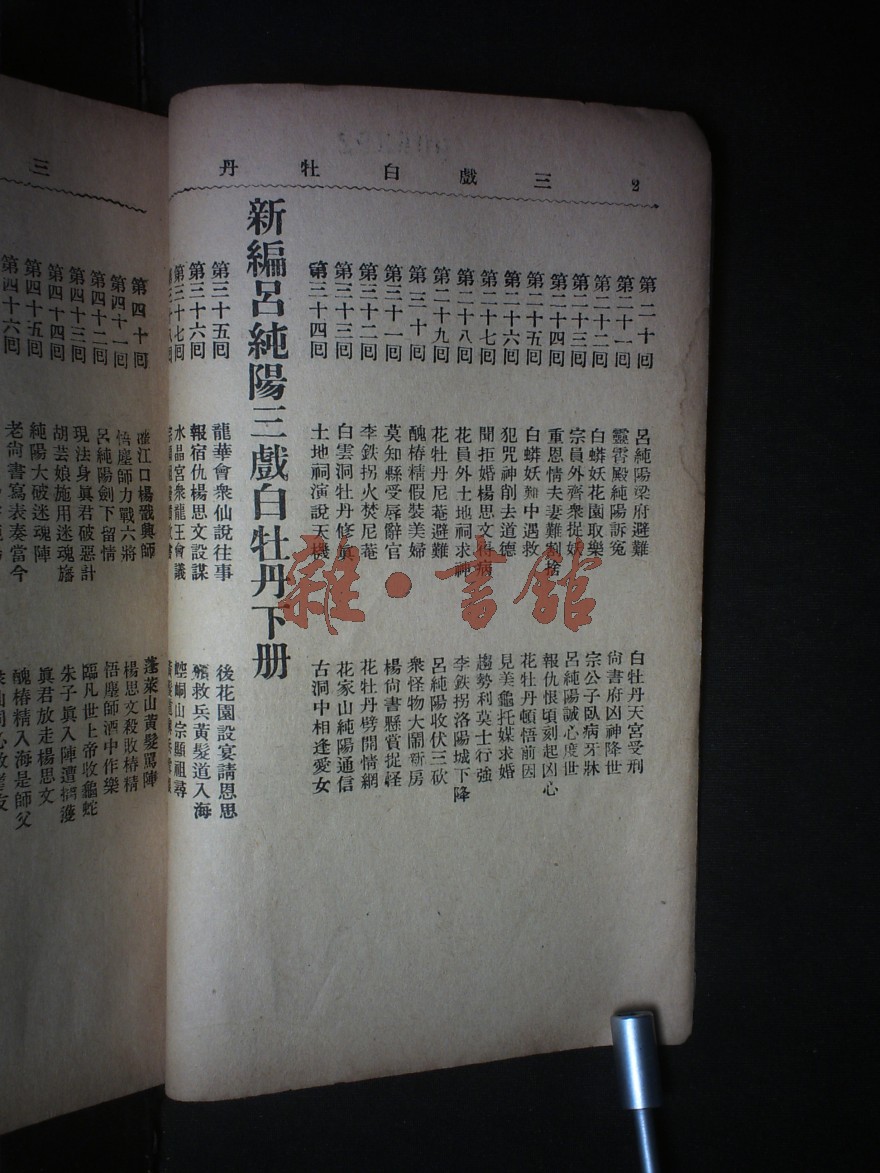 三戲白牡丹
2
第二十回 呂純陽梁府避難 白牡丹天宮受刑
第二十一回 靈霄殿純陽訴冤 尙書府凶神降世
第二十二回 白蟒妖花園取樂 宗公子臥病牙牀
第二十三回 宗員外齊衆捉妖 呂純陽誠心度世
第二十四回 重恩情夫妻難割捨 報仇恨頃刻起凶心
第二十五回 白蟒妖難中遇救 花牡丹頓悟前因
第二十六回 犯咒神削去道德 見美龜托媒求婚
第二十七回 聞拒婚楊思文得病 趨勢利莫士行強
第二十八回 花員外土地祠求神 李鉄拐洛陽城下降
第二十九回 花牡丹尼菴避難 呂純陽收伏三砍
第三十回 醜樁精假裝美婦 衆怪物大鬧新房
第三十一回 莫知縣受辱辭官 楊尙書懸賞捉怪
第三十二回 李鉄拐火焚尼菴 花牡丹劈開情網
第三十三回 白雲洞牡丹修眞 花家山純陽通信
第三十四回 土地祠演說天機 古洞中相逢愛女
新編呂純陽三戲白牡丹下册
第三十五回 龍華會衆仙說往事 後花園設宴請恩思
第三十六回 報宿仇楊思文設謀 救兵黃髮道入海
第三十七回 水晶宮衆龍王會議 崆峒山宗顯祖尋
三
第四十回 江口楊戩興師 蓬萊山黃髮罵陣
第四十一回 悟塵師力戰六將 楊思文殺敗樁精
第四十二回 呂純陽劍下留情 悟塵師酒中作樂
第四十三回 現法身眞君破惡計 臨凡世上帝收龜蛇
第四十四回 胡芸娘施用迷魂旛 朱子眞入陣遭擒
第四十五回 純陽大破迷魂陣 眞君放走楊思文
第四十六回 老尙書寫表奏當今 醜樁精入海是師父
雜·書館